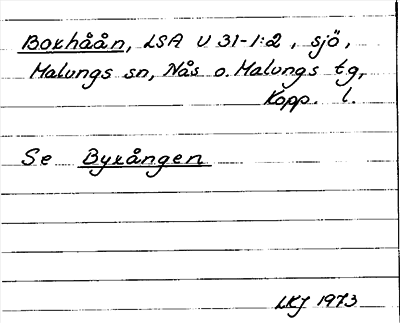 Borhåån, LSA U 31-1:2, sjö,
Malungs sn, Nås o. Malungs tg,
Kopp. l.
Se Byrången
LKJ 1973